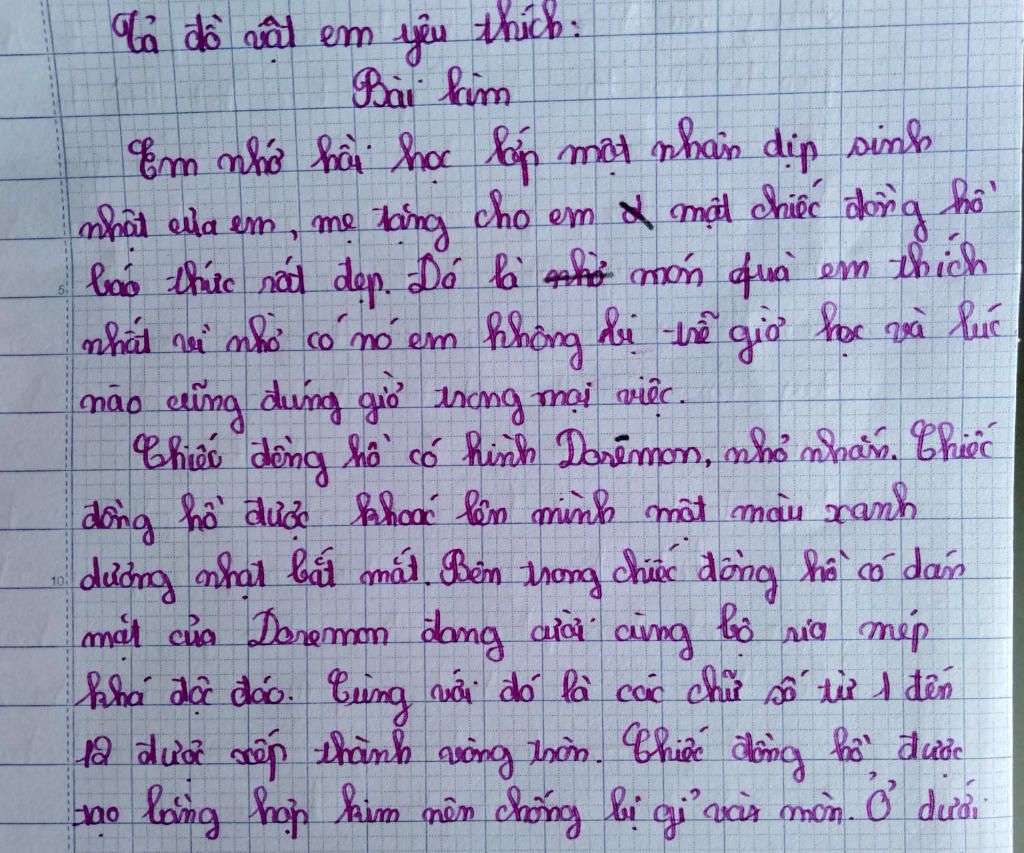 Tả đồ vật em yêu thích:
Bài làm
Em nhớ hồi học lớp một nhân dịp sinh
nhật của em, mẹ tặng cho em một chiếc đồng hồ
báo thức rất đẹp. Đó là món quà em thích
nhất vì nhờ có nó em không bị trễ giờ học và lúc
nào cũng đúng giờ trong mọi việc.
Chiếc đồng hồ có hình Dorēmon, nhỏ nhắn. Chiếc
đồng hồ được khoác lên mình một màu xanh
dương nhạt bắt mắt. Bên trong chiếc đồng hồ có dán
mặt của Doremon đang cười cùng bộ ria mép
khá độc đáo. Cùng với đó là các chữ số từ 1 đến
12 được xếp thành vòng tròn. Chiếc đồng hồ được
tạo bằng hợp kim nên chống bị gỉ và mòn. Ở dưới